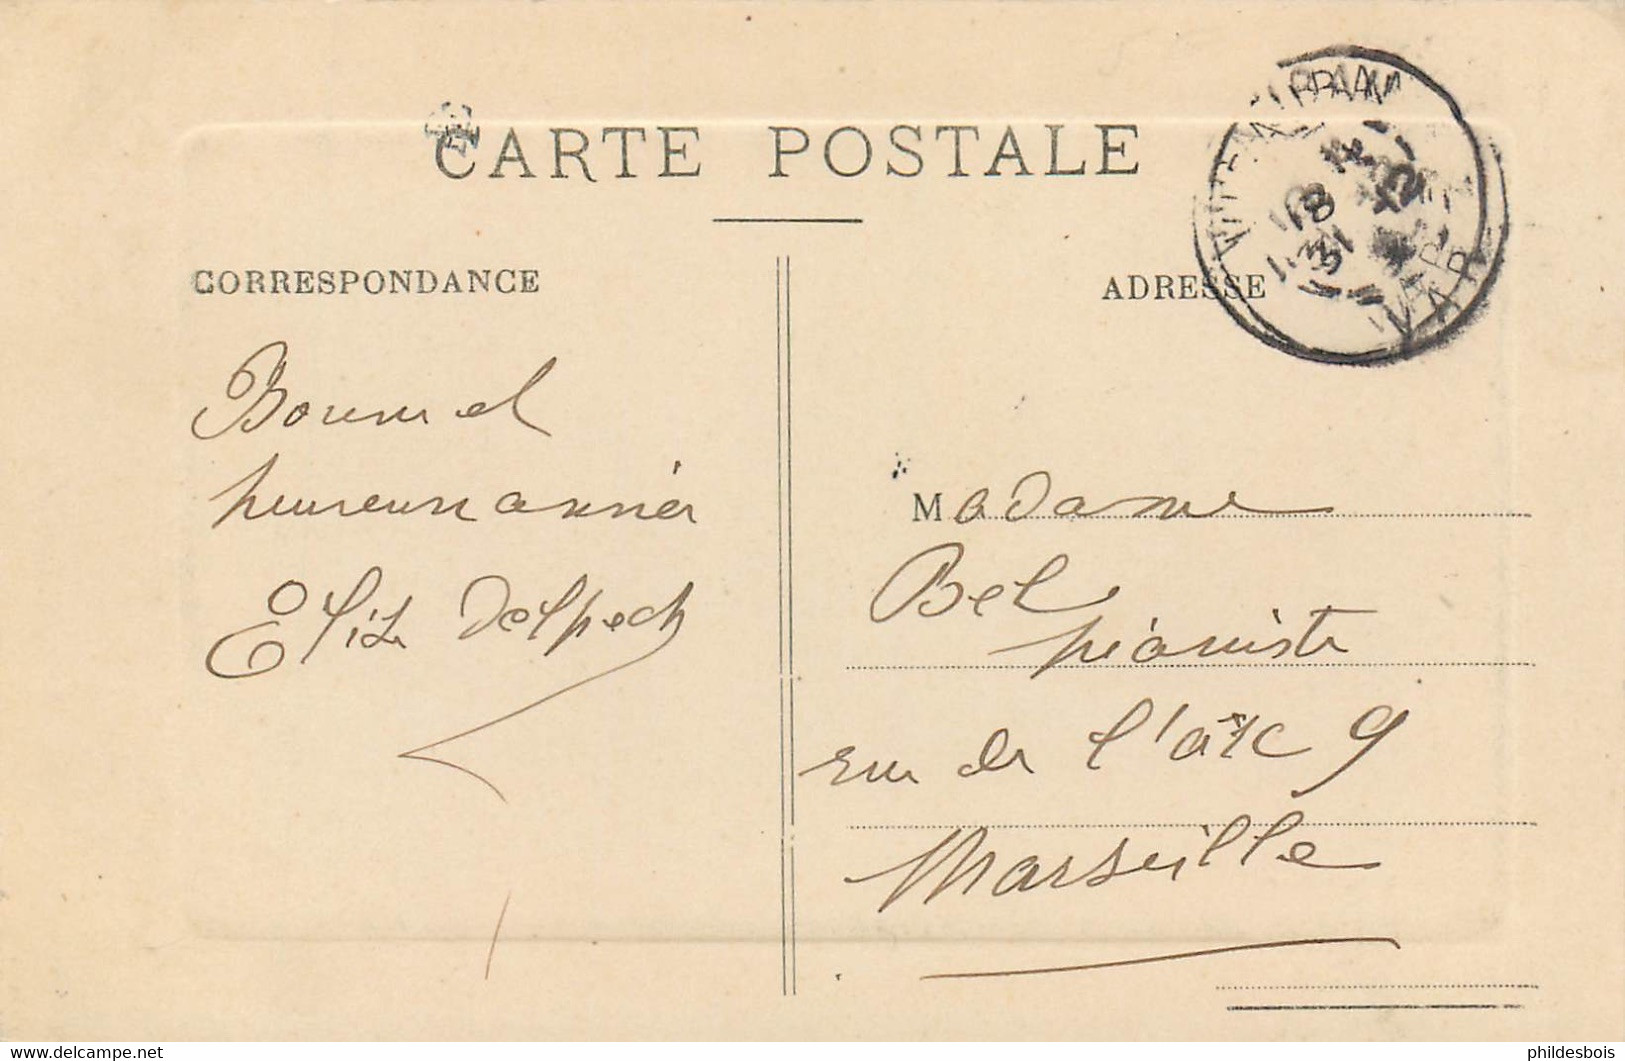 CARTE POSTALE
CORRESPONDANCE
ADRESSE
Bonne et
heureuse année
Eliza Delpech
Madame
Bel
pianiste
rue de l'arc 9
Marseille
VAR
delcampe.net
phildesbois